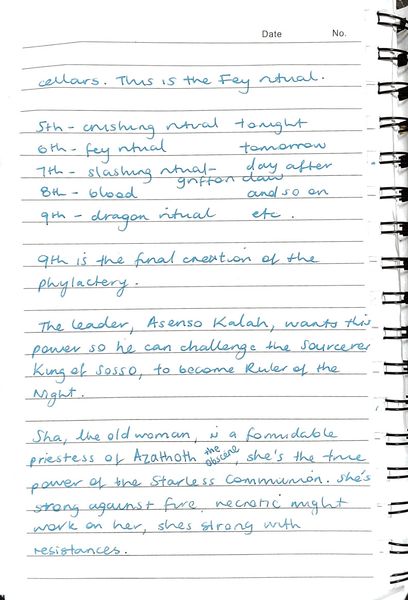 Date No.
cellars. This is the Fey ritual.
5th - crushing ritual tonight
6th - fey ritual tomorrow
7th - slashing ritual - day after
griffon claw
8th - blood and so on
9th - dragon ritual etc.
9th is the final creation of the
phylactery.
The leader, Asenso Kalah, wants this
power so he can challenge the Sourcerer
King of Sosso, to become Ruler of the
Night.
Sha, the old woman, is a formidable
priestess of Azathoth the obscene, she's the true
power of the Starless Communion. She's
strong against fire, necrotic might
work on her, shes strong with
resistances.